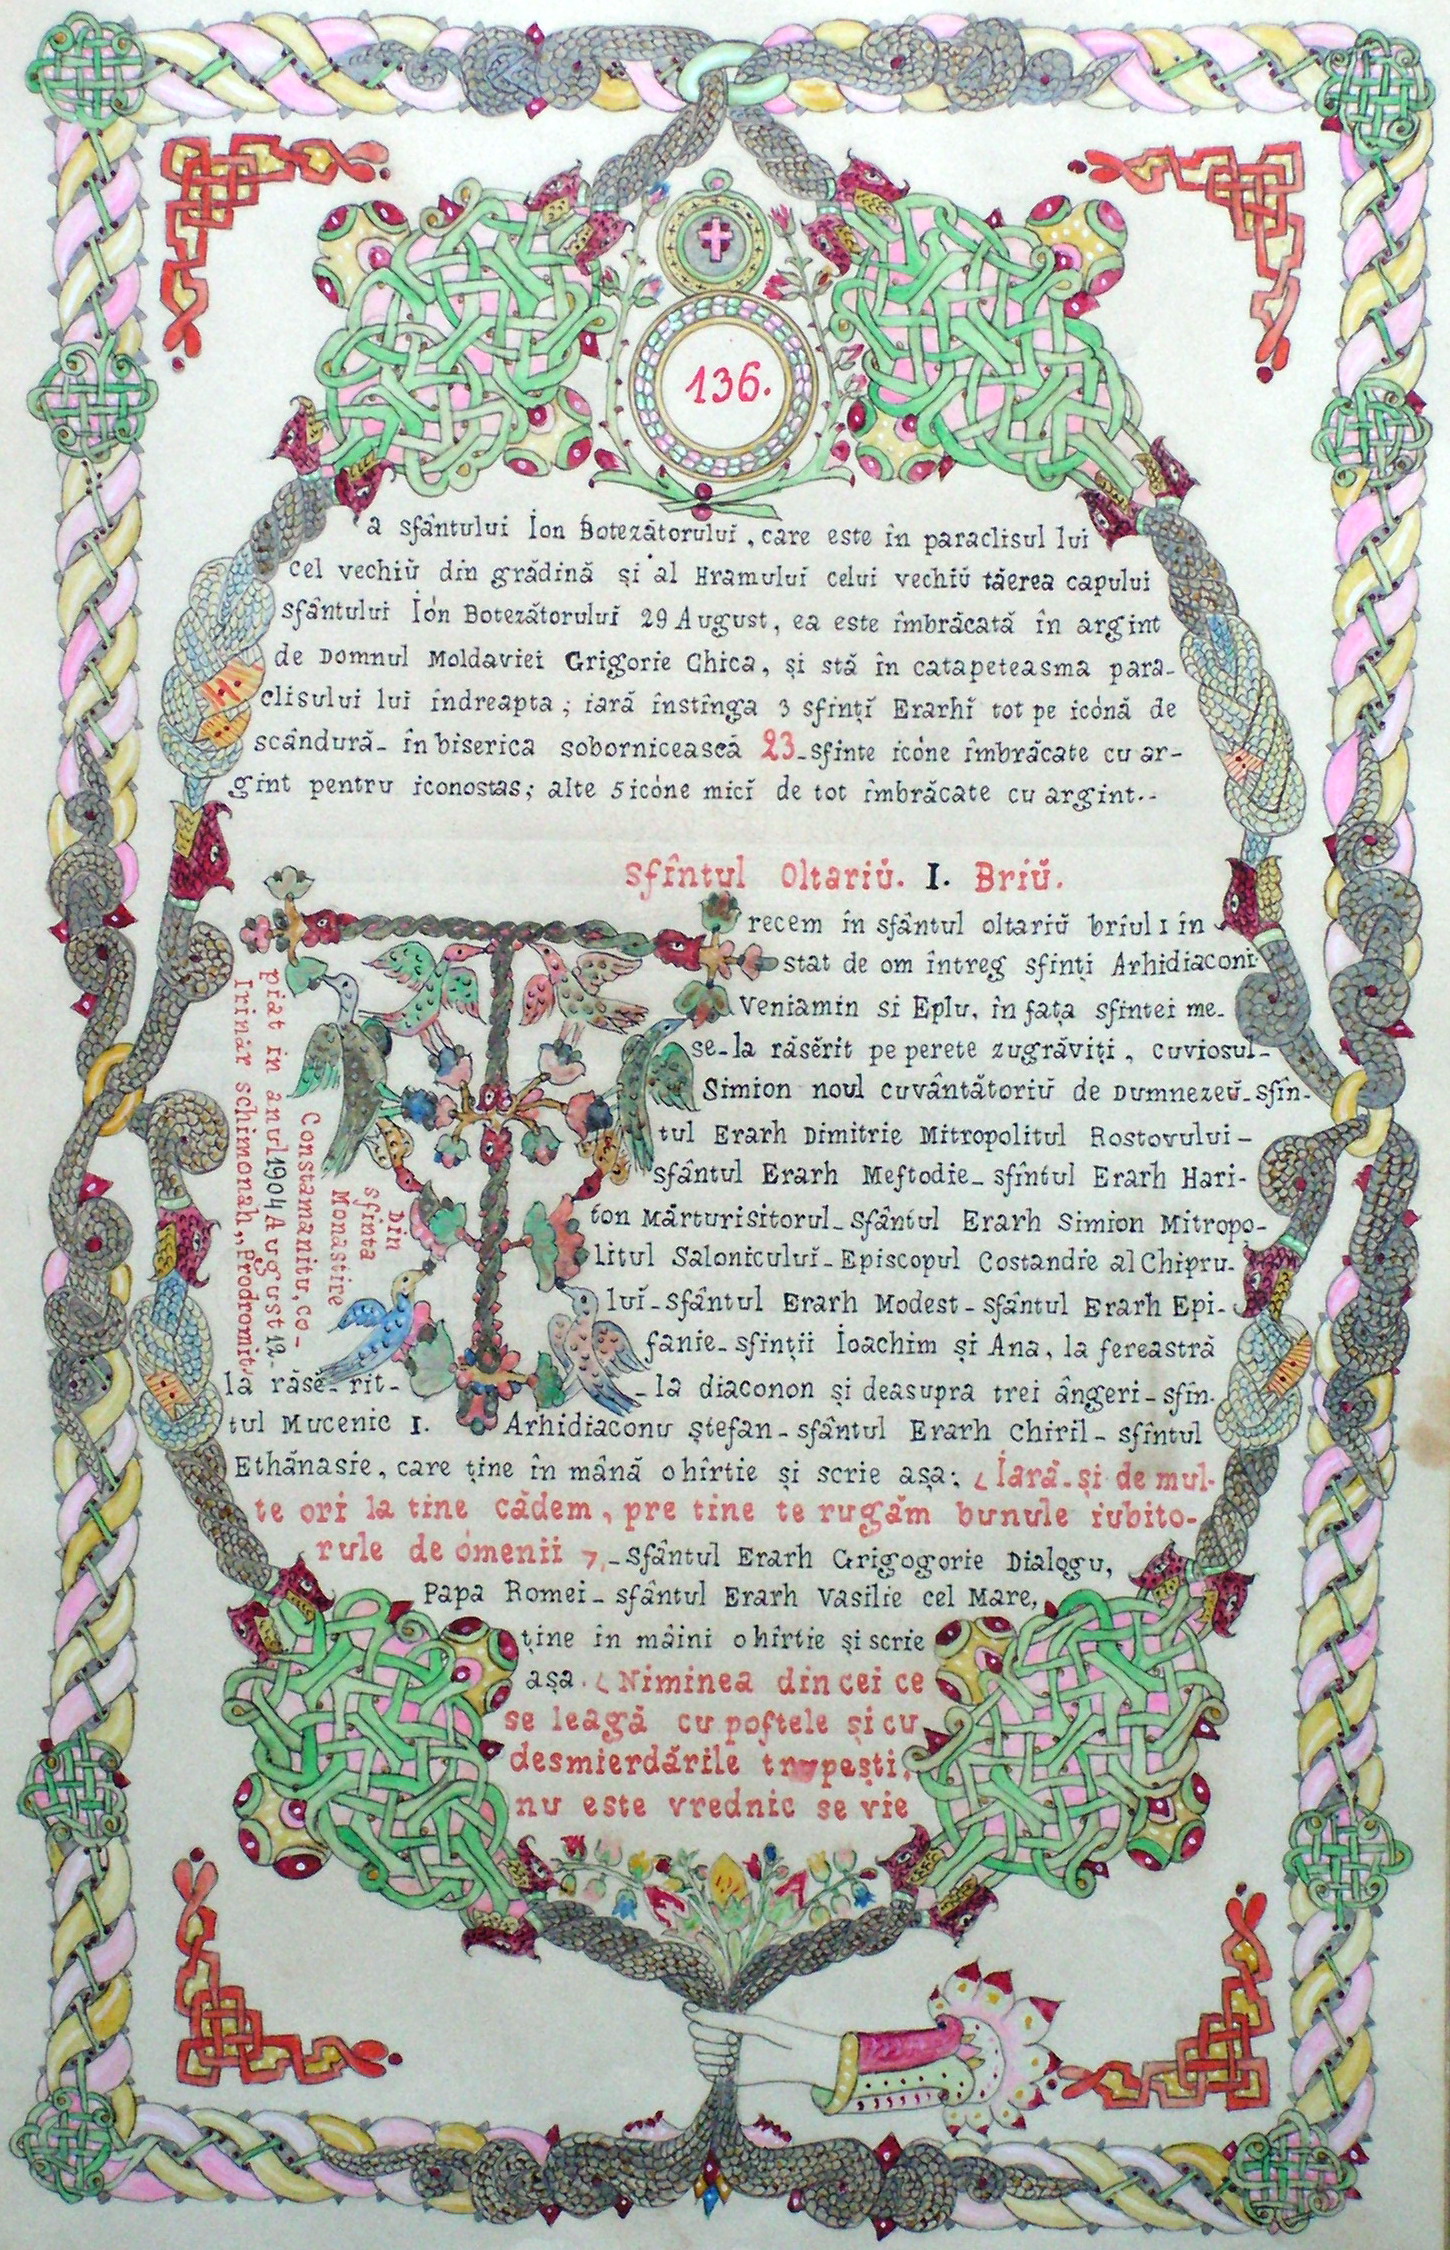 136.
a sfântului Ion Botezătorului, care este în paraclisul lui
cel vechiŭ din grădină și al Hramului celui vechiŭ tăerea capului
sfântului Ión Botezătoruluĭ 29 August, ea este îmbrăcată în argint
de Domnul Moldaviei Grigorie Ghica, și stă în catapeteasma para-
clisului lui îndreapta; iară înstînga 3 sfințĭ Erarhĭ tot pe icónă de
scândură - în biserica sobornicească 23 - sfinte icóne îmbrăcate cu ar-
gint pentru iconostas; alte 5 icóne micĭ de tot îmbrăcate cu argint.--
Sfîntul Oltariŭ. I. Briŭ.
Trecem în sfântul oltariŭ brîul 1 în
stat de om întreg sfinți Arhidiaconi
Veniamin si Eplu, în fața sfintei me-
se - la răsĕrit pe perete zugrăviți, cuviosul -
Simion noul cuvântătoriŭ de Dumnezeŭ - sfîn-
tul Erarh Dimitrie Mitropolitul Rostovului -
sfântul Erarh Meftodie - sfîntul Erarh Hari-
ton Mărturisitorul - Sfântul Erarh Simion Mitropo-
litul Saloniculuĭ - Episcopul Costandie al Chipru-
luĭ - Sfântul Erarh Modest - sfântul Erarh Epi-
fanie - sfinții Ioachim și Ana, la fereastră
la răsĕ-rit - - la diaconon și deasupra trei ângeri - sfîn-
tul Mucenic I. Arhidiaconu Ștefan - sfântul Erarh Chiril - sfîntul
Ethănasie, care ține în mână o hîrtie și scrie așa: ⟨Iară-și de mul-
te ori la tine cădem, pre tine te rugăm bunule iubito-
rule de ómenii ⁊, - Sfântul Erarh Grigogorie Dialogu,
Papa Romei - sfântul Erarh Vasilie cel Mare,
ține în mâini o hîrtie și scrie
așa. ⟨Niminea din cei ce
se leagă cu poftele și cu
desmierdările trupești,
nu este vrednic se vie
Din
sfînta
Monastire
Constamanitu, co-
piat in anul 1904 August 12.
Irinár schimonah, „Prodromit"